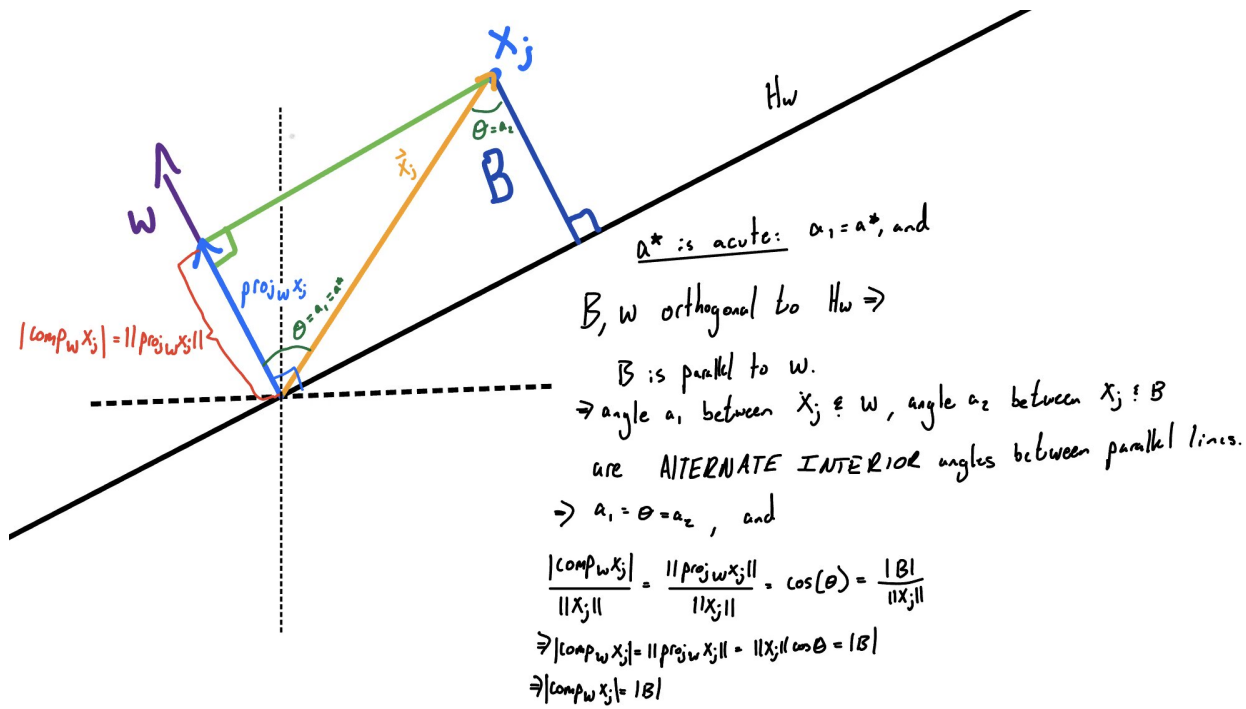 X_j
H_w
θ=a₂
x⃗_j
B
w
a* is acute: a₁ = a*, and
proj_w x_j
θ=a₁=a*
B, w orthogonal to H_w ⇒
|comp_w x_j| = ||proj_w x_j||
B is parallel to w.
⇒ angle a₁ between X_j & w, angle a₂ between X_j & B
are ALTERNATE INTERIOR angles between parallel lines.
⇒ a₁ = θ = a₂, and
|comp_w x_j| / ||x_j|| = ||proj_w x_j|| / ||x_j|| = cos(θ) = |B| / ||x_j||
⇒ |comp_w x_j| = ||proj_w x_j|| = ||x_j|| cos θ = |B|
⇒ |comp_w x_j| = |B|